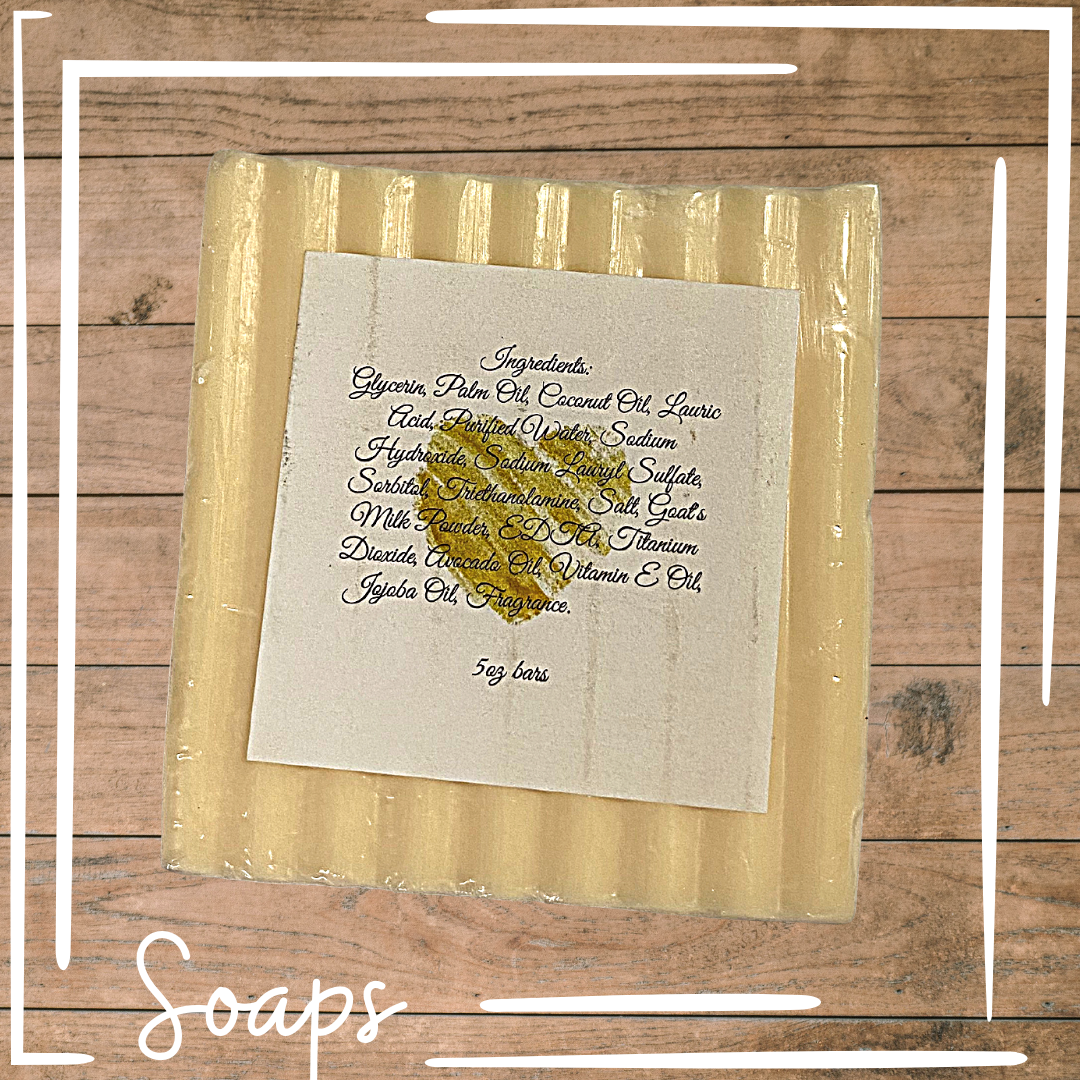 Ingredients:
Glycerin, Palm Oil, Coconut Oil, Lauric
Acid, Purified Water, Sodium
Hydroxide, Sodium Lauryl Sulfate,
Sorbitol, Triethanolamine, Salt, Goat's
Milk Powder, EDTA, Titanium
Dioxide, Avocado Oil, Vitamin E Oil,
Jojoba Oil, Fragrance.
5oz bars
Soaps